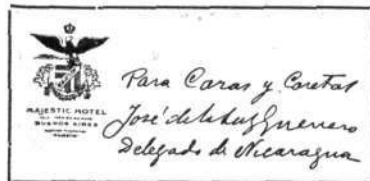 MAJESTIC HOTEL
BUENOS AIRES
Para Caras y Caretas
José de la Luz Guerrero
Delegado de Nicaragua